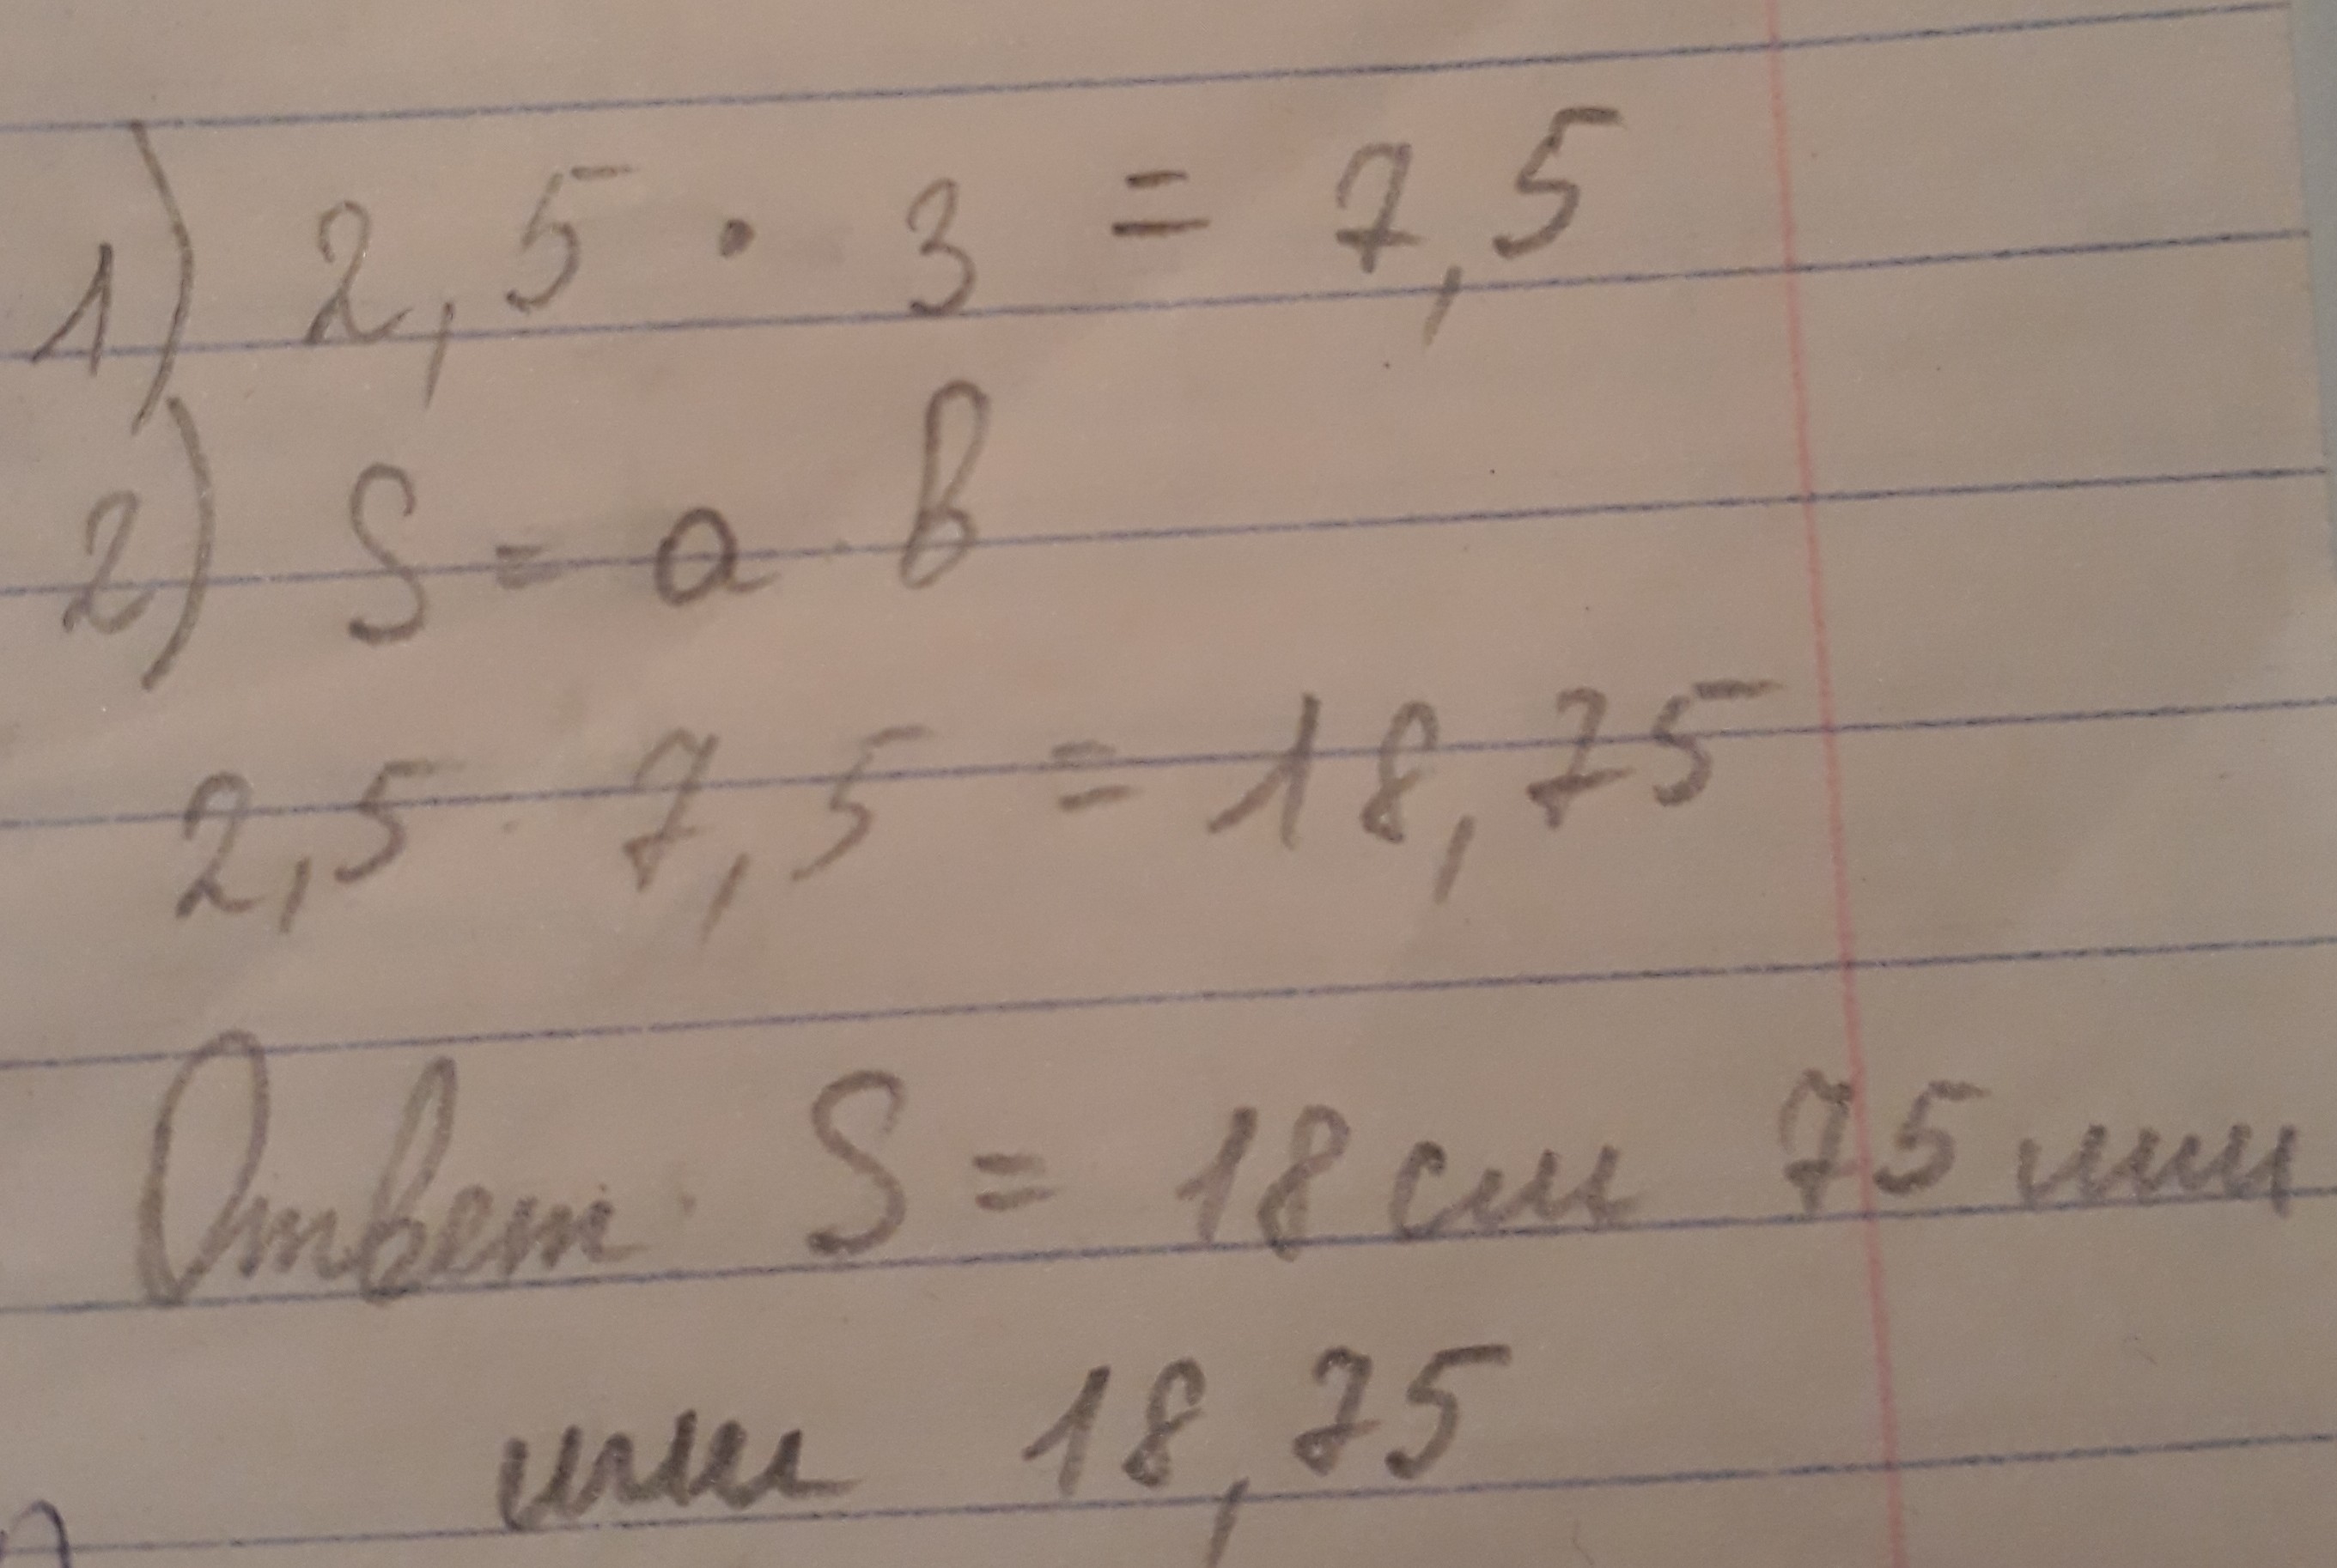 1) 2,5 · 3 = 7,5
2) S = a · в
2,5 · 7,5 = 18,75
Ответ. S = 18 см 75 мм
или 18,75